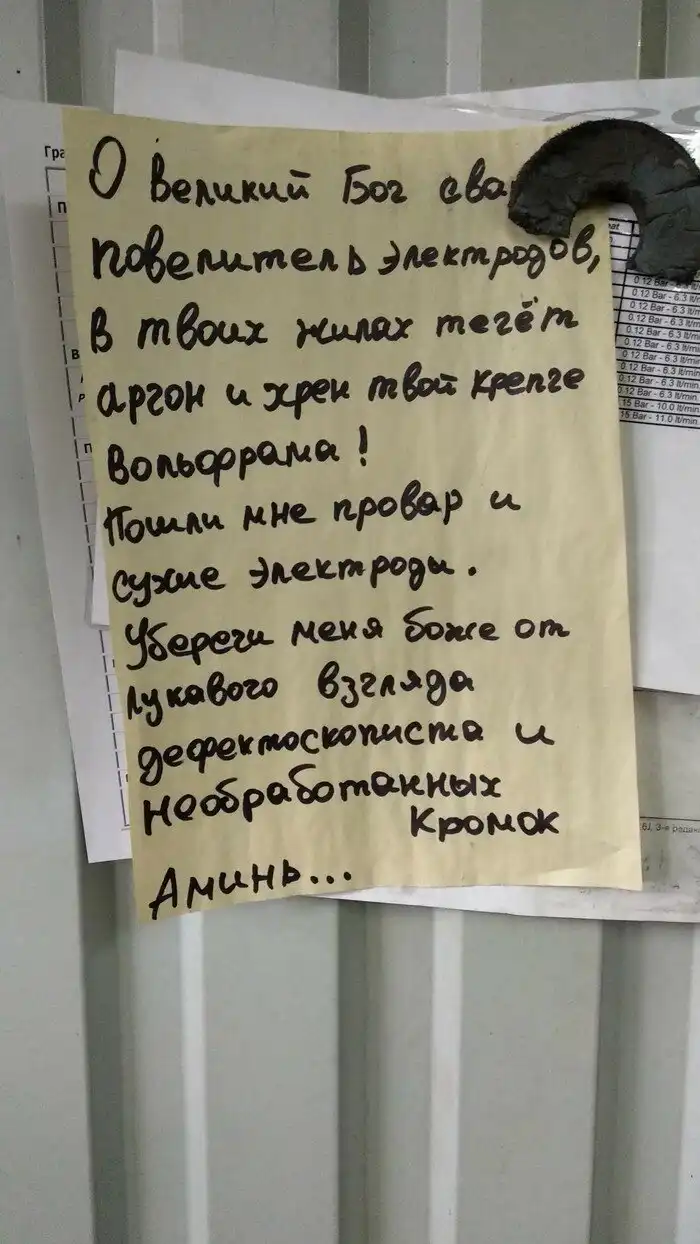 О великий Бог сва
повелитель электродов,
в твоих жилах течёт
аргон и хрен твой крепче
вольфрама!
Пошли мне провар и
сухие электроды.
Убереги меня боже от
лукавого взгляда
дефектоскописта и
необработанных
кромок
Аминь...
Гра
0.12 Bar - 6.3 lt/min
0.12 Bar - 6.3 lt/min
0.12 Bar - 6.3 lt/min
0.12 Bar - 6.3 lt/min
0.12 Bar - 6.3 lt/min
0.12 Bar - 6.3 lt/min
15 Bar - 10.0 lt/min
15 Bar - 11.0 lt/min